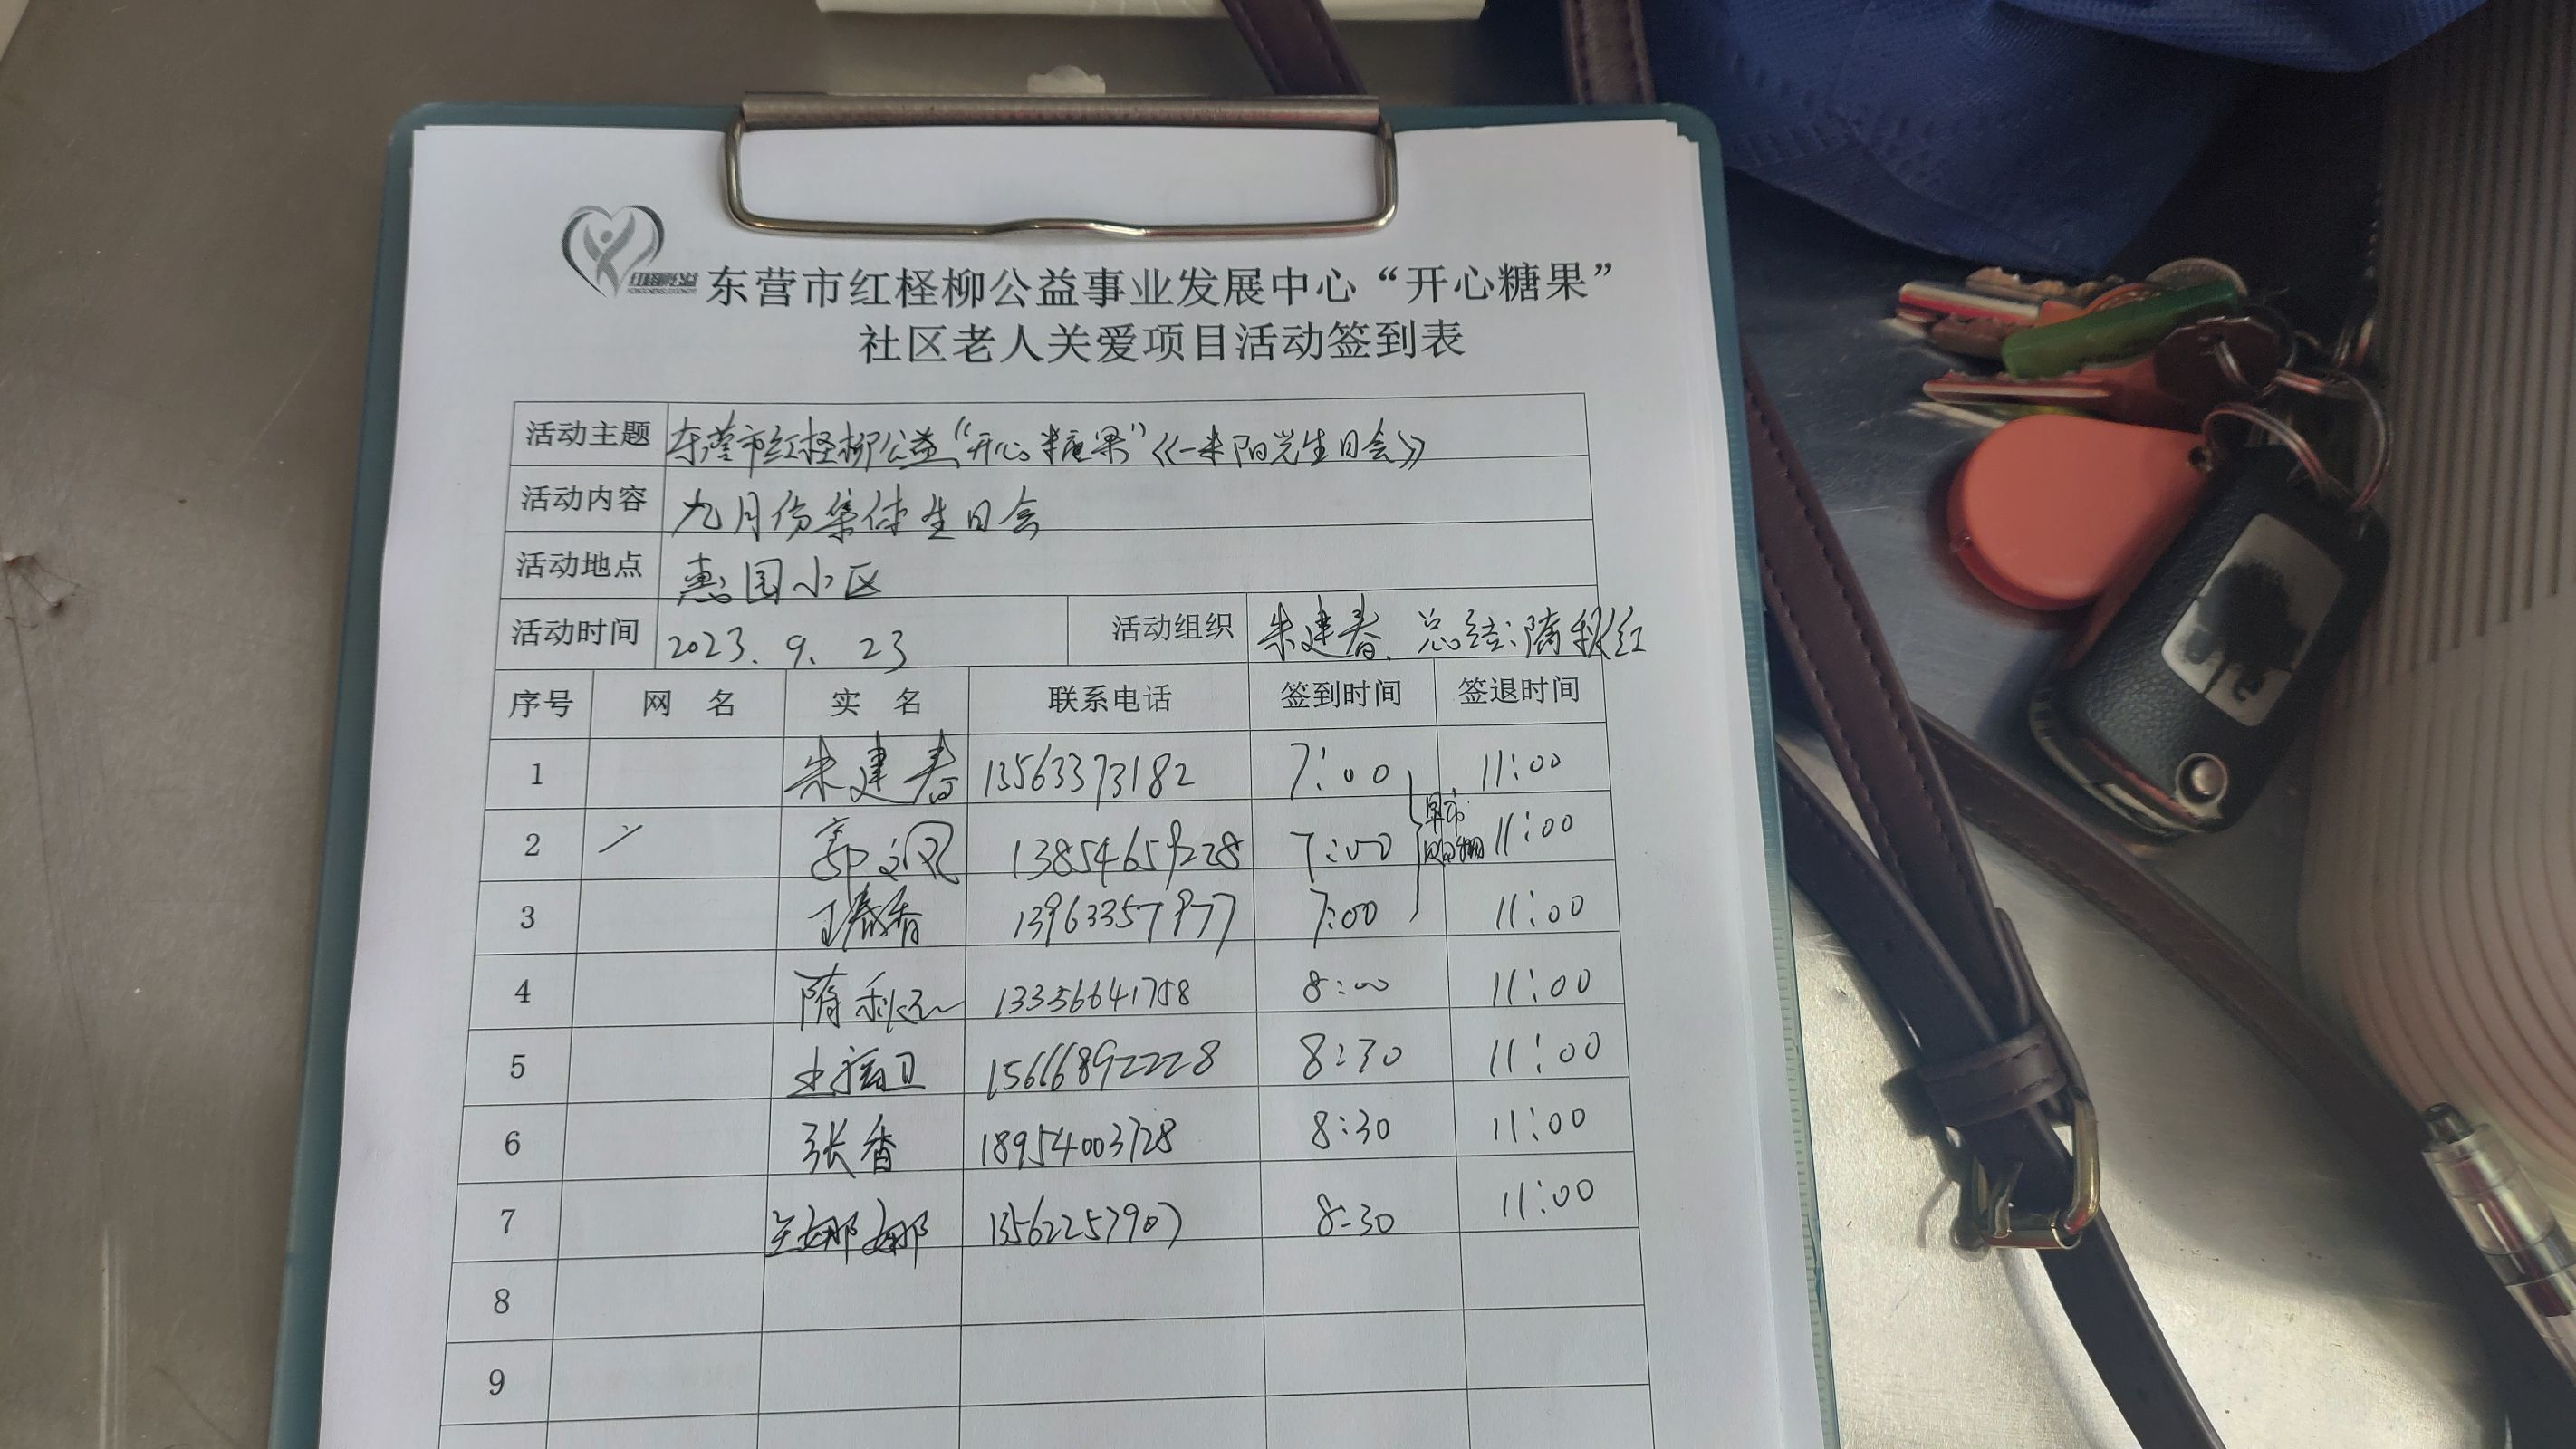 红柽柳公益
东营市红柽柳公益事业发展中心“开心糖果”
社区老人关爱项目活动签到表
活动主题 东营市红柽柳公益“开心糖果”《一米阳光生日会》
活动内容 九月份集体生日会
活动地点 惠园小区
活动时间 2023.9.23 活动组织 朱建春、总结:隋秋红
序号 网名 实名 联系电话 签到时间 签退时间
1 朱建春 13563373182 7:00 11:00
2 郭文凤 13854659228 7:00 早市购物 11:00
3 王春香 13963357977 7:00 11:00
4 隋秋红 13356641758 8:00 11:00
5 15666892228 8:30 11:00
6 张香 18954003728 8:30 11:00
7 兰娜娜 13562257907 8:30 11:00
8
9